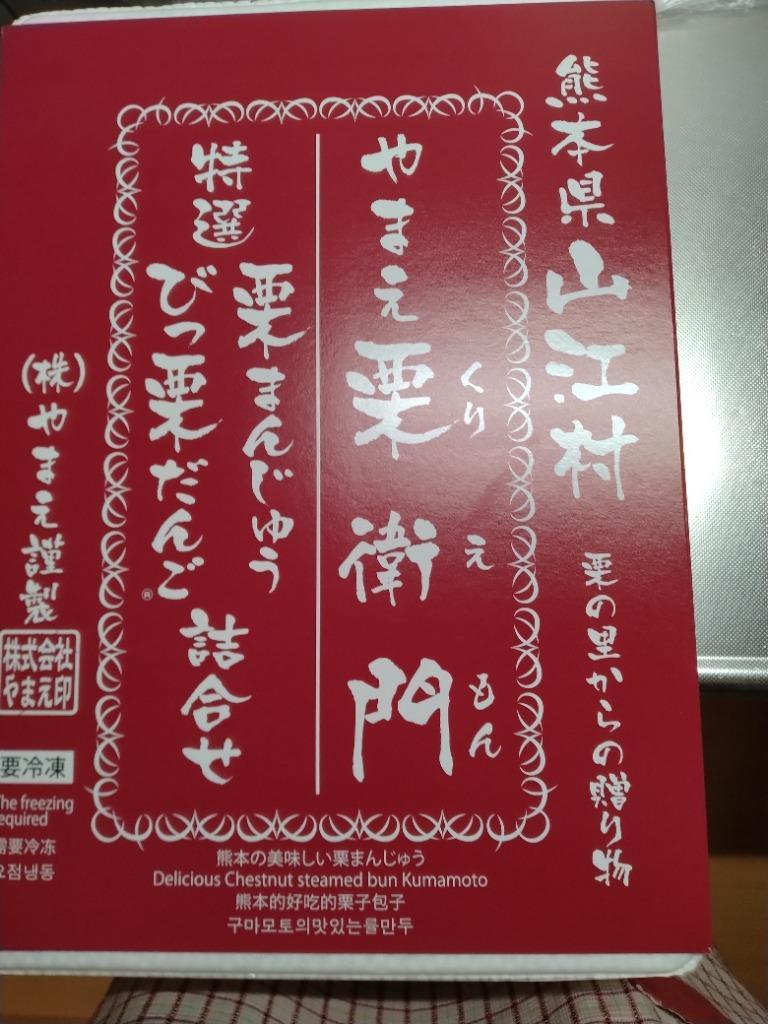 熊本県山江村 栗の里からの贈り物
やまえ栗衛門
くり
え
もん
特選
栗まんじゅう
びっ栗だんご®
詰合せ
(株)やまえ謹製
株式会社
やまえ印
要冷凍
The freezing
required
需要冷冻
요점냉동
熊本の美味しい栗まんじゅう
Delicious Chestnut steamed bun Kumamoto
熊本的好吃的栗子包子
구마모토의맛있는률만두